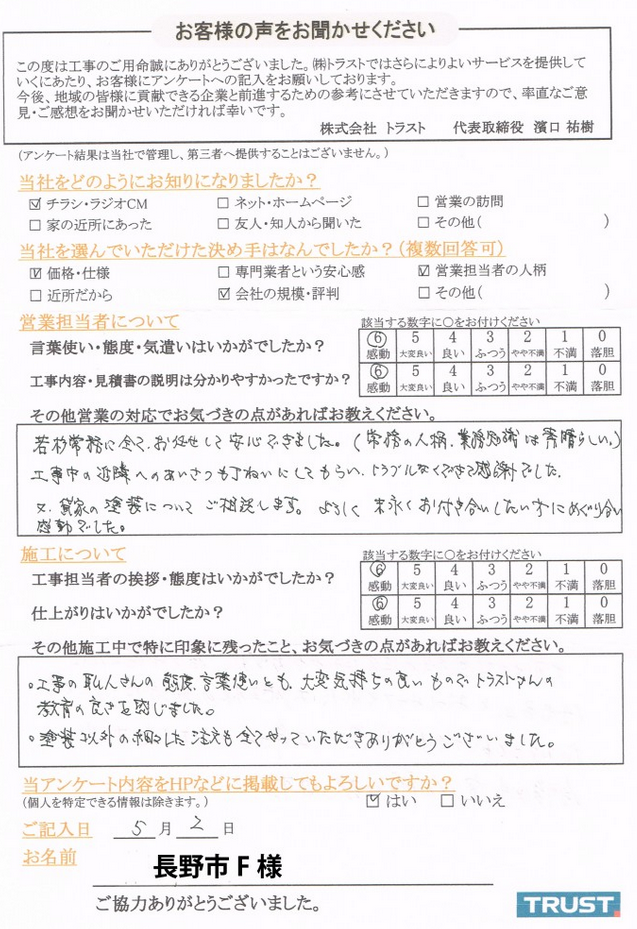 お客様の声をお聞かせください
この度は工事のご用命誠にありがとうございました。㈱トラストではさらによりよいサービスを提供して
いくにあたり、お客様にアンケートへの記入をお願いしております。
今後、地域の皆様に貢献できる企業と前進するための参考にさせていただきますので、率直なご意
見・ご感想をお聞かせいただければ幸いです。
株式会社 トラスト　代表取締役 濱口 祐樹
(アンケート結果は当社で管理し、第三者へ提供することはございません。)
当社をどのようにお知りになりましたか？
☑ チラシ・ラジオCM　□ ネット・ホームページ　□ 営業の訪問
□ 家の近所にあった　□ 友人・知人から聞いた　□ その他(　)
当社を選んでいただけた決め手はなんでしたか？(複数回答可)
☑ 価格・仕様　□ 専門業者という安心感　☑ 営業担当者の人柄
□ 近所だから　☑ 会社の規模・評判　□ その他(　)
営業担当者について　該当する数字に○をお付けください
言葉使い・態度・気遣いはいかがでしたか？　⑥ 5 4 3 2 1 0
感動 大変良い 良い ふつう やや不満 不満 落胆
工事内容・見積書の説明は分かりやすかったですか？　⑥ 5 4 3 2 1 0
感動 大変良い 良い ふつう やや不満 不満 落胆
その他営業の対応でお気づきの点があればお教えください。
若杉常務に全て、お任せして安心できました。(常務の人柄、業務知識は素晴らしい。)
工事中の近隣へのあいさつも丁ねいにしてもらい、トラブルなくできて感謝でした。
又、貸家の塗装についてご相談します。よろしく 末永くお付き合いしたい方にめぐり合い
感動でした。
施工について　該当する数字に○をお付けください
工事担当者の挨拶・態度はいかがでしたか？　⑥ 5 4 3 2 1 0
感動 大変良い 良い ふつう やや不満 不満 落胆
仕上がりはいかがでしたか？　⑥ 5 4 3 2 1 0
感動 大変良い 良い ふつう やや不満 不満 落胆
その他施工中で特に印象に残ったこと、お気づきの点があればお教えください。
。工事の職人さんの態度、言葉使いとも、大変気持ちの良いもので、トラストさんの
教育の良さを感じました。
。塗装以外の細々した注文も全てやっていただきありがとうございました。
当アンケート内容をHPなどに掲載してもよろしいですか？
(個人を特定できる情報は除きます。)　☑ はい　□ いいえ
ご記入日　5 月 2 日
お名前　長野市 F 様
ご協力ありがとうございました。
TRUST.